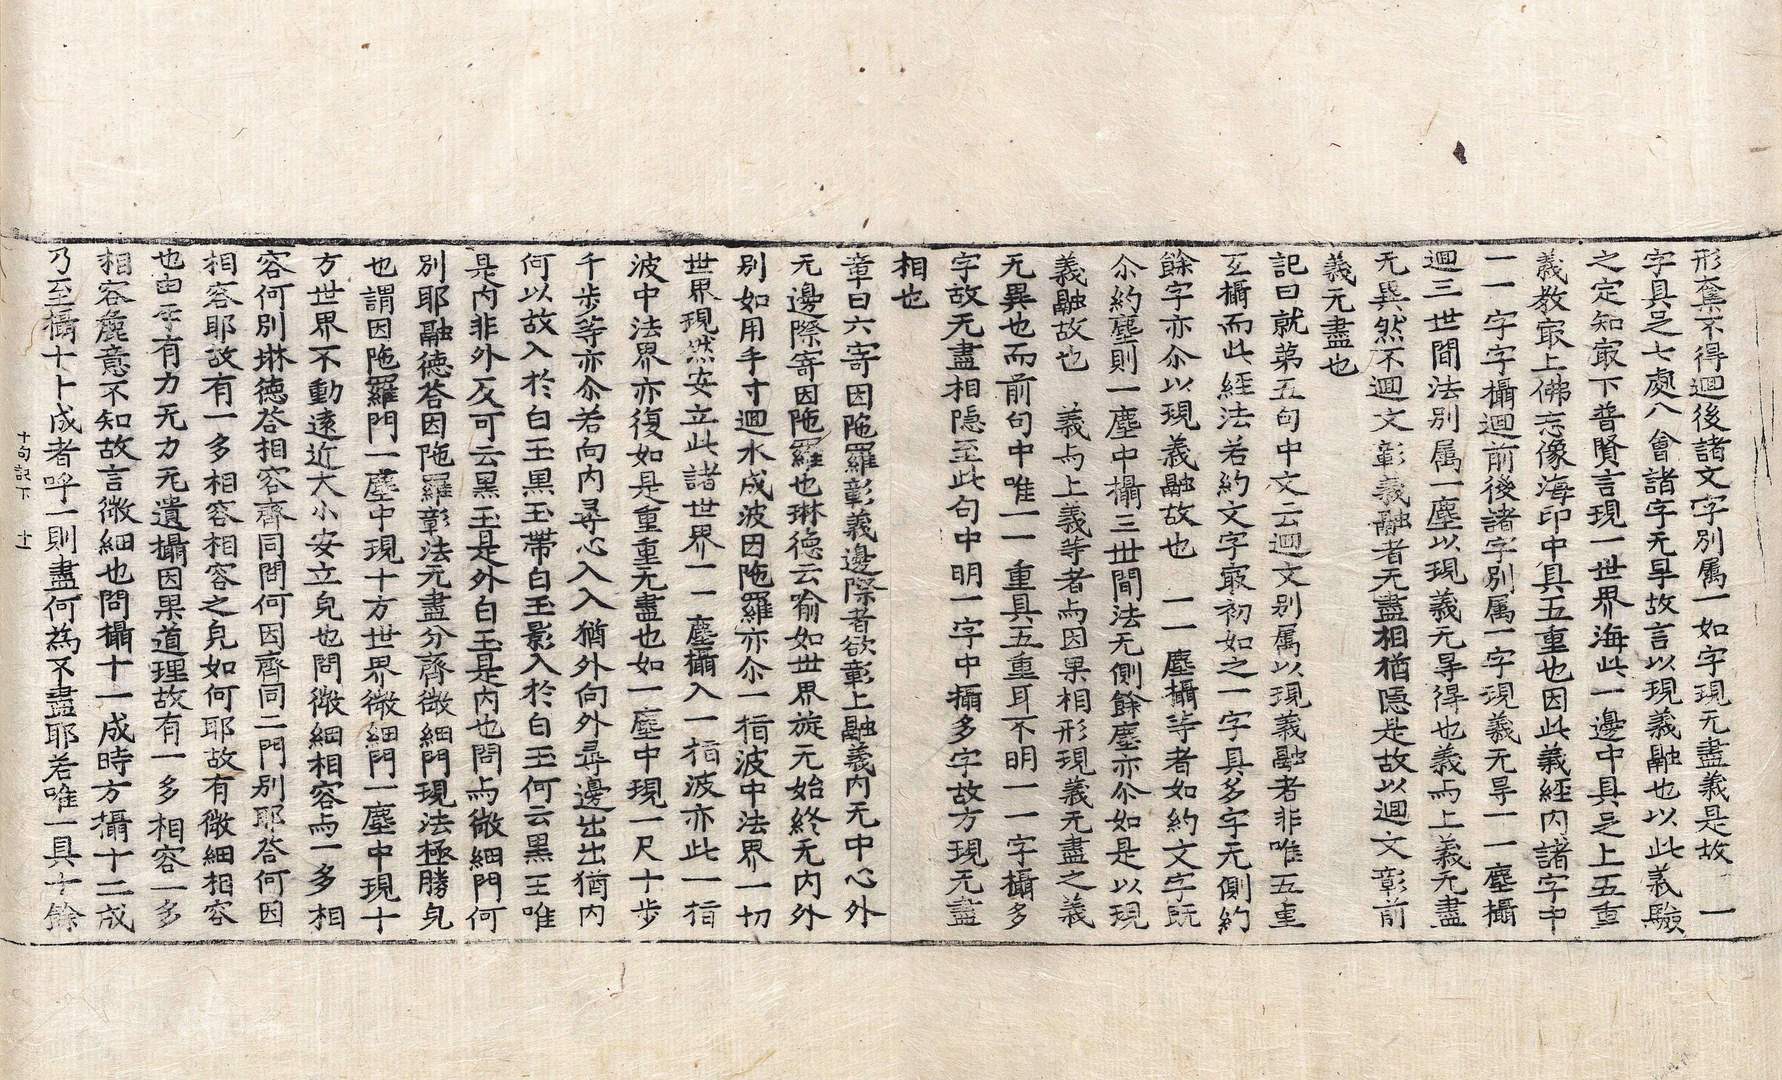 形奪不得迴後諸文字別属一如字現无盡義是故　一
字具足七處八會諸字无导故言以現義融也以此義驗
之定知㝡下普賢言現一世界海此一邊中具足上五重
義教㝡上佛忘像海印中具五重也因此義經内諸字中
一一字字攝迴前後諸字別属一字現義无导一一塵攝
迴三世間法別属一塵以現義无导得也義与上義无盡
无異然不迴文彰義融者无盡相猶隠是故以迴文彰前
義无盡也
記曰就第五句中文云迴文別属以現義融者非唯五重
互攝而此經法若約文字㝡初如之一字具多字无側約
餘字亦尒以現義融故也　一一塵攝等者如約文字既
尒約塵則一塵中攝三世間法无側餘塵亦尒如是以現
義融故也　義与上義等者与因果相形現義无盡之義
无異也而前句中唯一一重具五重耳不明一一字攝多
字故无盡相隠至此句中明一字中攝多字故方現无盡
相也
章曰六寄因陁羅彰義邊際者欲彰上融義内无中心外
无邊際寄因陁羅也琳德云喻如世界旋无始終无内外
別如用手寸迴水成波因陁羅亦尒一指波中法界一切
世界現然安立此諸世界一一塵攝入一指波亦此一指
波中法界亦復如是重重无盡也如一塵中現一尺十步
千步等亦尒若向内尋心入入猶外向外尋邊出出猶内
何以故入於白玉黑玉帶白玉影入於白玉何云黑玉唯
是内非外反可云黑玉是外白玉是内也問与微細門何
別耶融德答因陁羅彰法无盡分齊微細門現法極勝皃
也謂因陁羅門一塵中現十方世界微細門一塵中現十
方世界不動遠近大小安立皃也問微細相容与一多相
容何別琳德答相容齊同問何因齊同二門別耶答何因
相容耶故有一多相容相容之皃如何耶故有微細相容
也由空有力无力无遺攝因果道理故有一多相容一多
相容麁意不知故言微細也問攝十一成時方攝十二成
乃至攝十十成者呼一則盡何為不盡耶若唯一具十餘
十句記下　十一